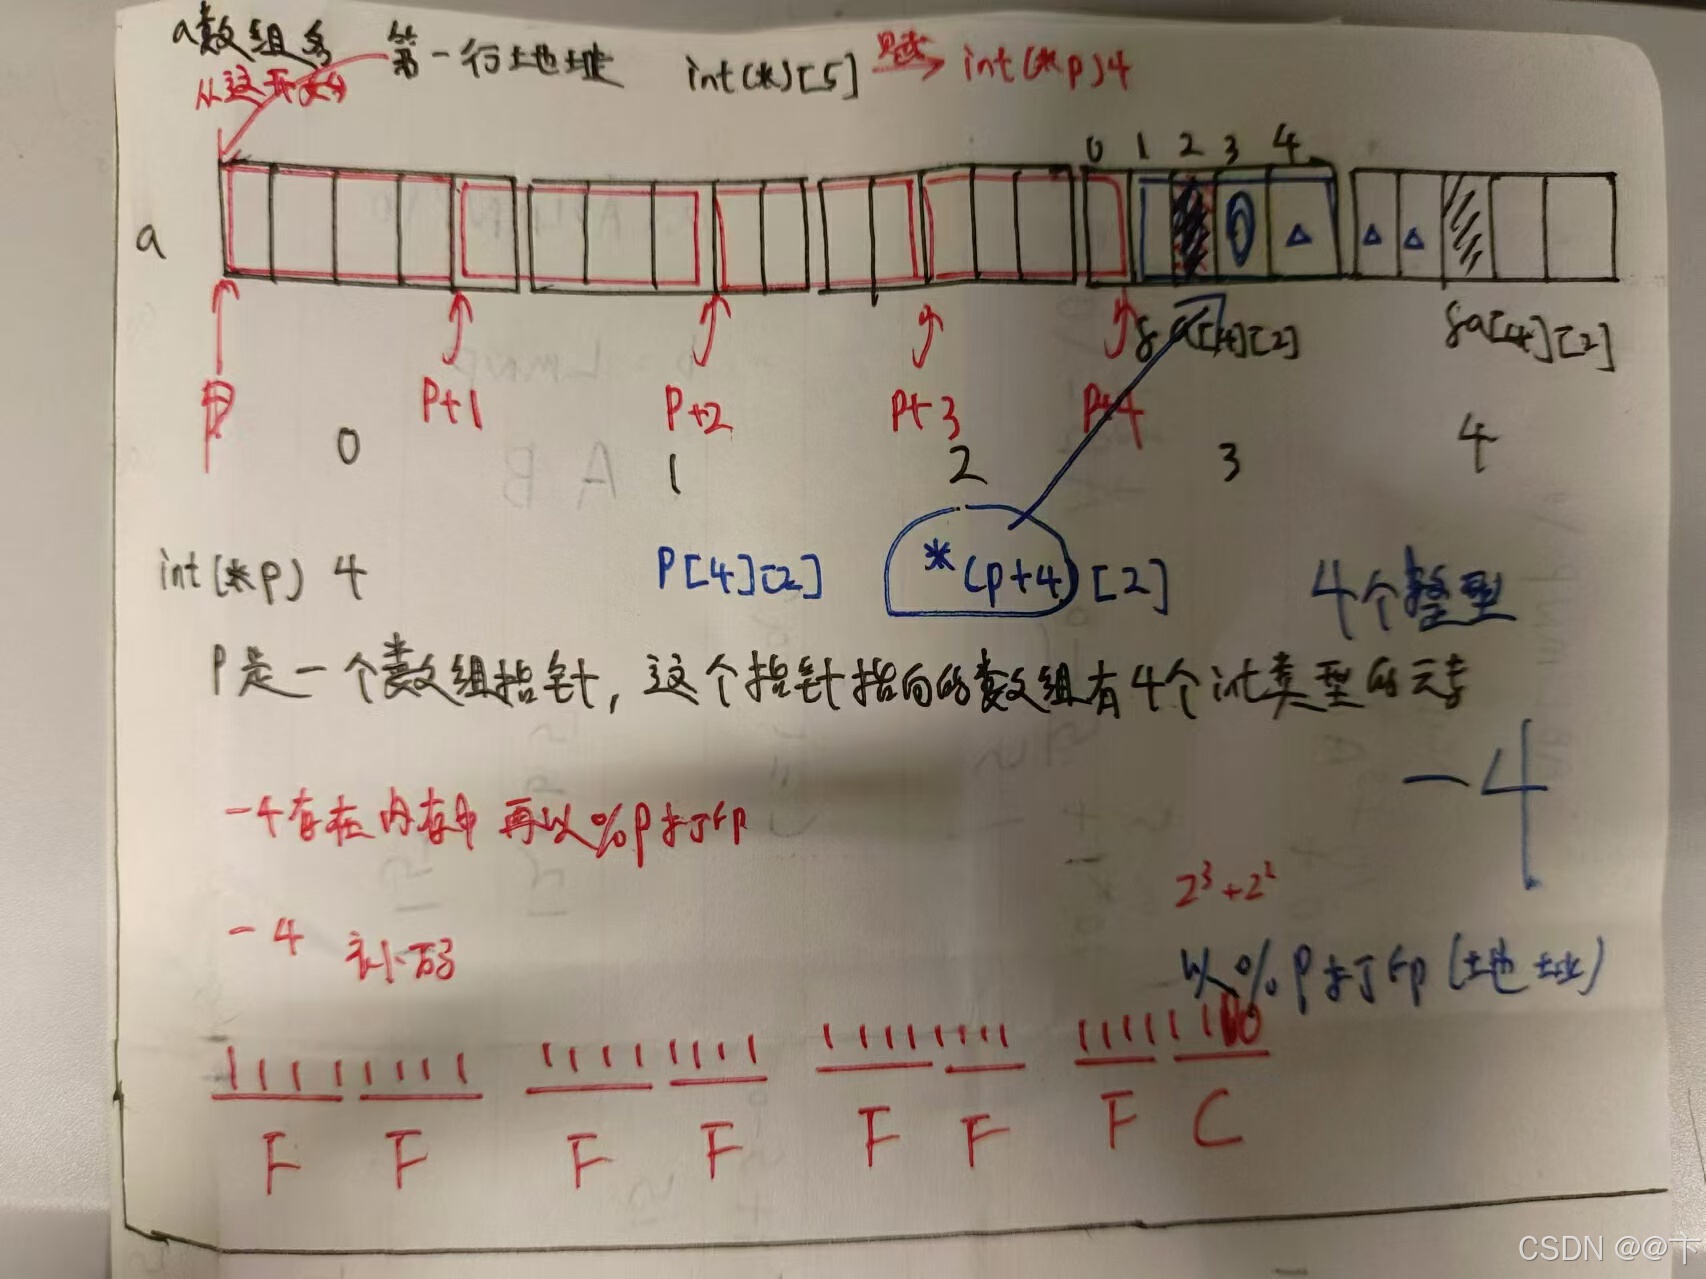 a数组名 第一行地址 int(*)[5] 赋 int(*p)4
从这开始
0 1 2 3 4
a
&a[4][2] &a[4][2]
P P+1 P+2 P+3 P+4
0 1 2 3 4
int(*p) 4 P[4][2] *(p+4)[2] 4个整型
P是一个数组指针,这个指针指向的数组有4个int类型的元素
-4
-4存在内存中 再以%p打印
2³+2²
-4 补码 以%p打印(地址)
11111111 11111111 11111111 11111100
F F F F F F F C
CSDN @@卞